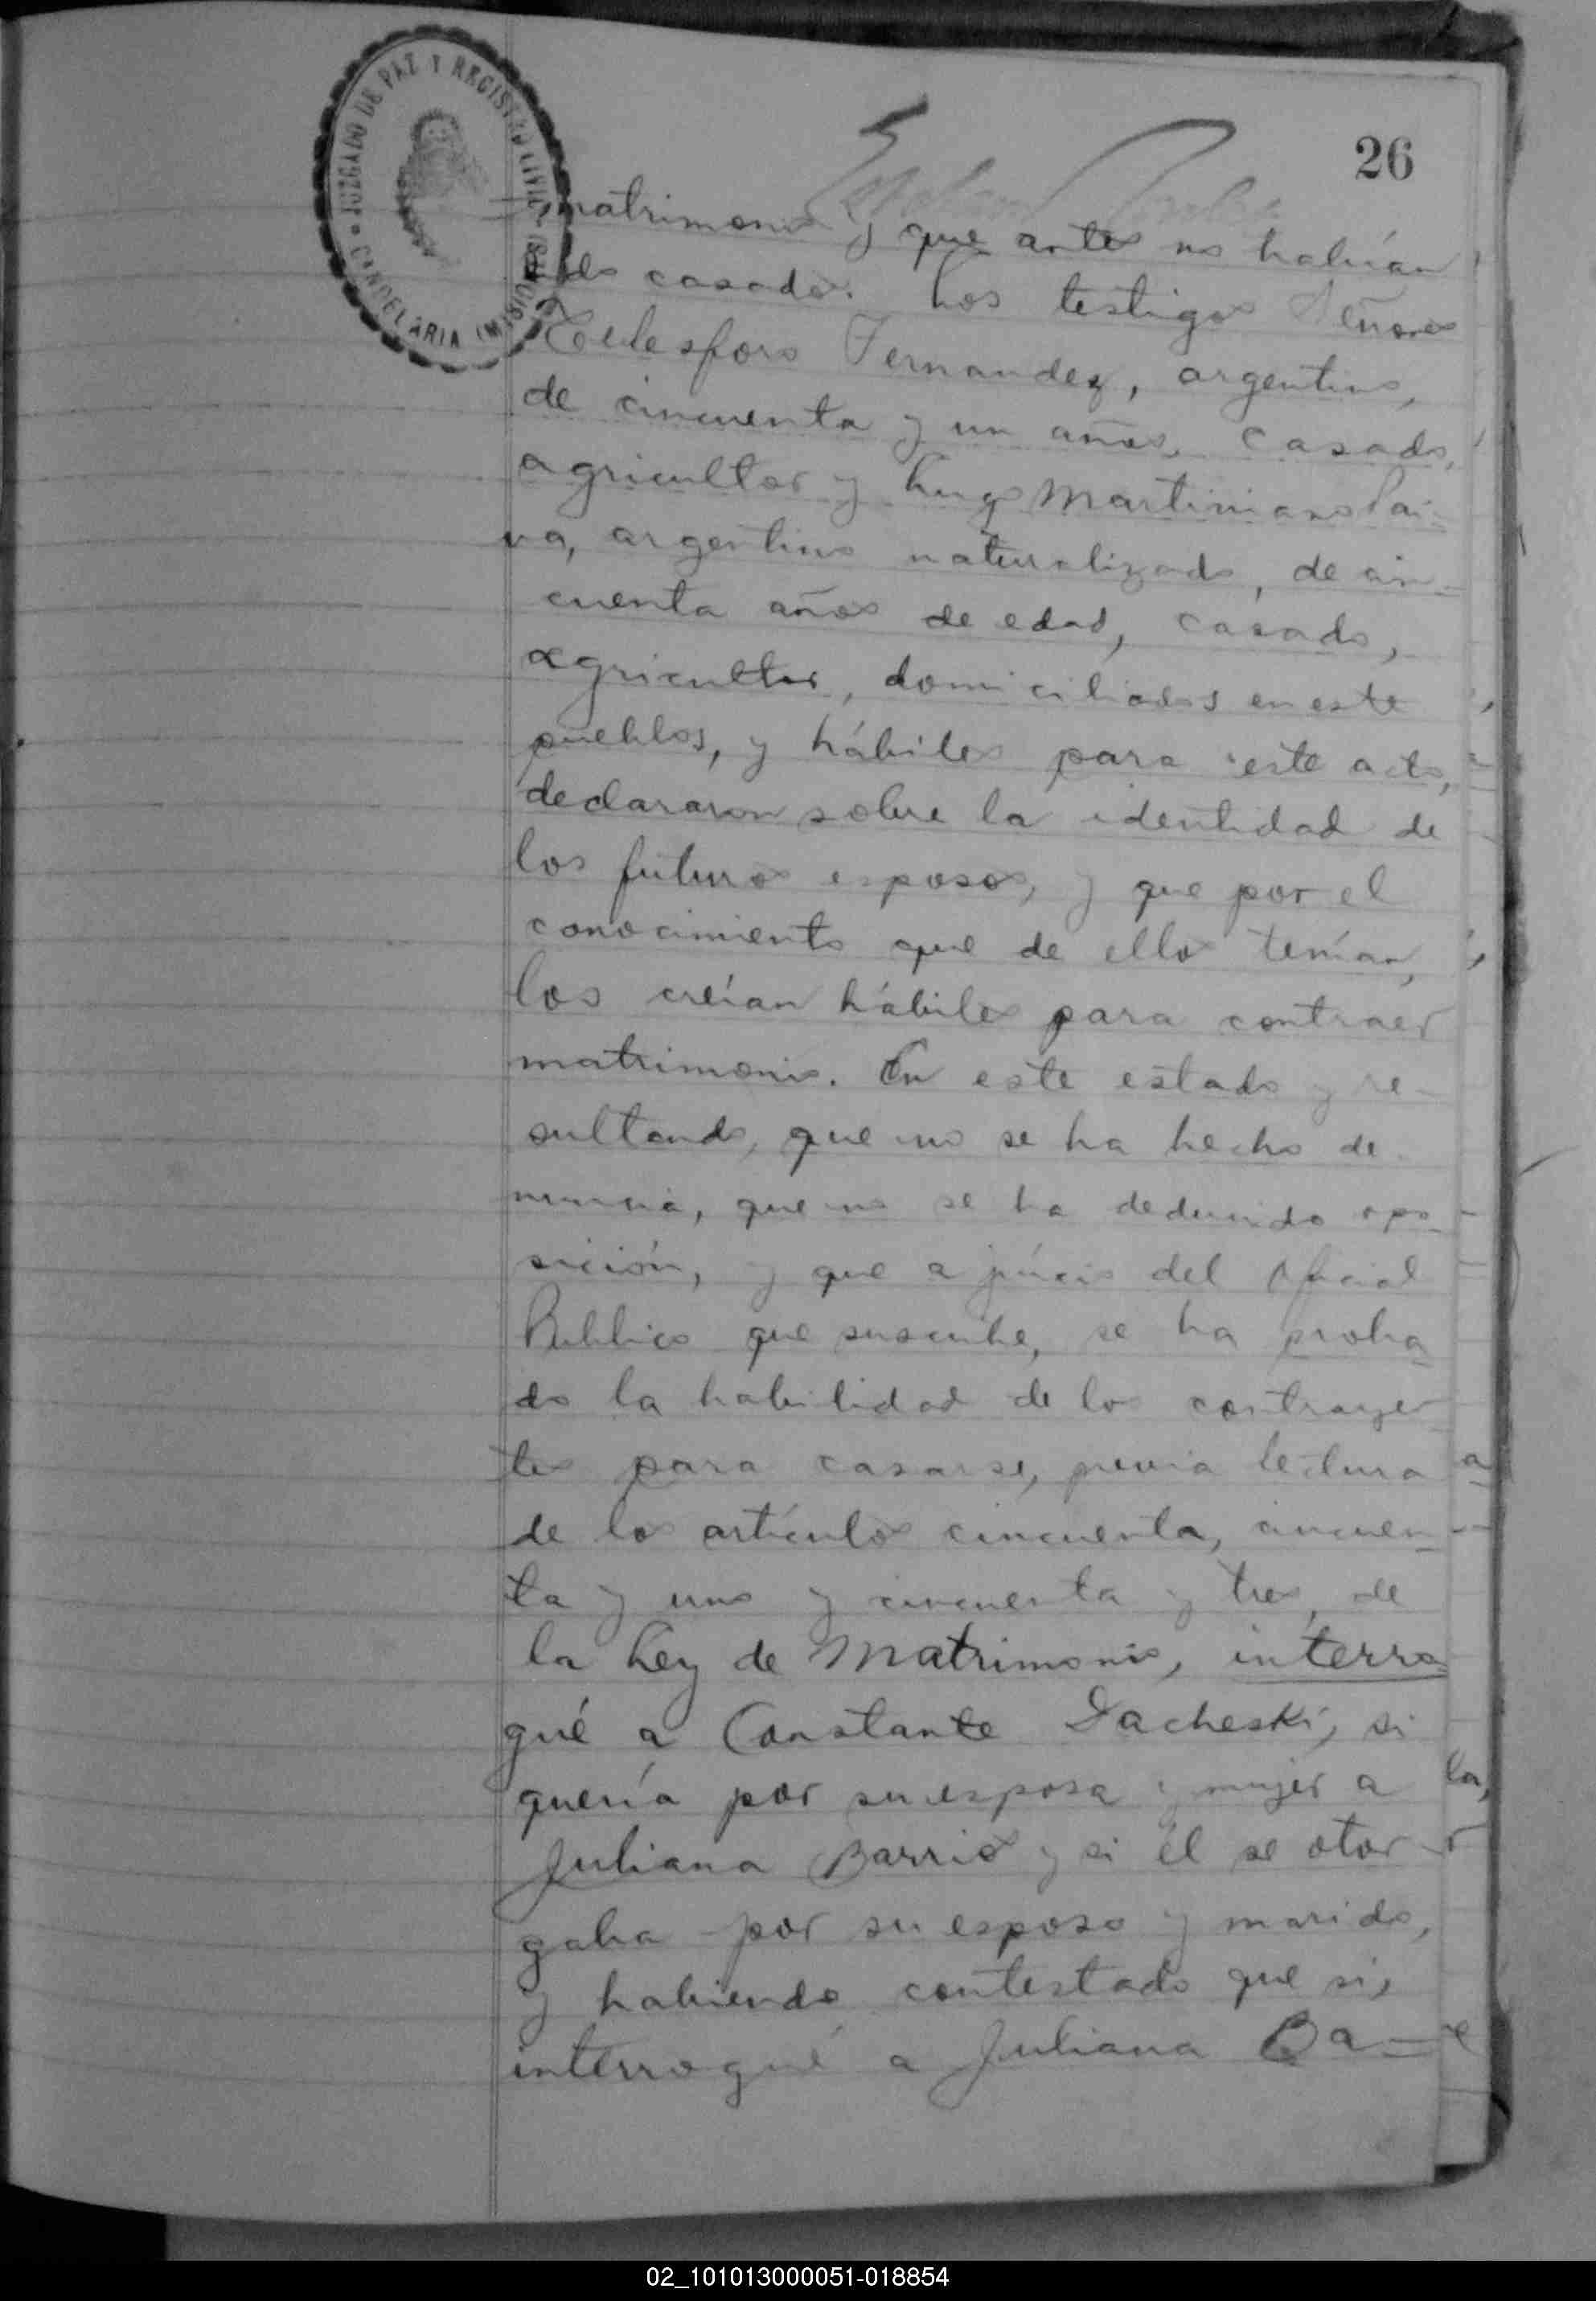 JUZGADO DE PAZ Y REGISTRO CIVIL
CANDELARIA (MISIONES)
26
matrimonio y que antes no habían
casados. Los testigos Señores
Telesforo Fernandez, argentino,
de cincuenta y un años, casado,
agricultor y Luiz Martiniano Pai-
va, argentino naturalizado, de cin-
cuenta años de edad, casado,
agricultor, domiciliados en este
pueblos, y hábiles para este acto,
declararon sobre la identidad de
los futuros esposos, y que por el
conocimiento que de ellos tenían,
los creían hábiles para contraer
matrimonio. En este estado y re-
sultando, que no se ha hecho de-
nuncia, que no se ha deducido opo-
sición, y que a júicio del Oficial
Publico que suscribe, se ha proba-
do la habilidad de los contrayen
tes para casarse, previa lectura
de los artículos cincuenta, cincuen-
ta y uno y cincuenta y tres, de
la Ley de Matrimonio, interro-
gué a Constante Dacheski, si
quería por su esposa y mujer a
Juliana Barrios y si él se otor-
gaba por su esposo y marido,
y habiendo contestado que si,
interrogué a Juliana Ba-
la,
02_101013000051-018854